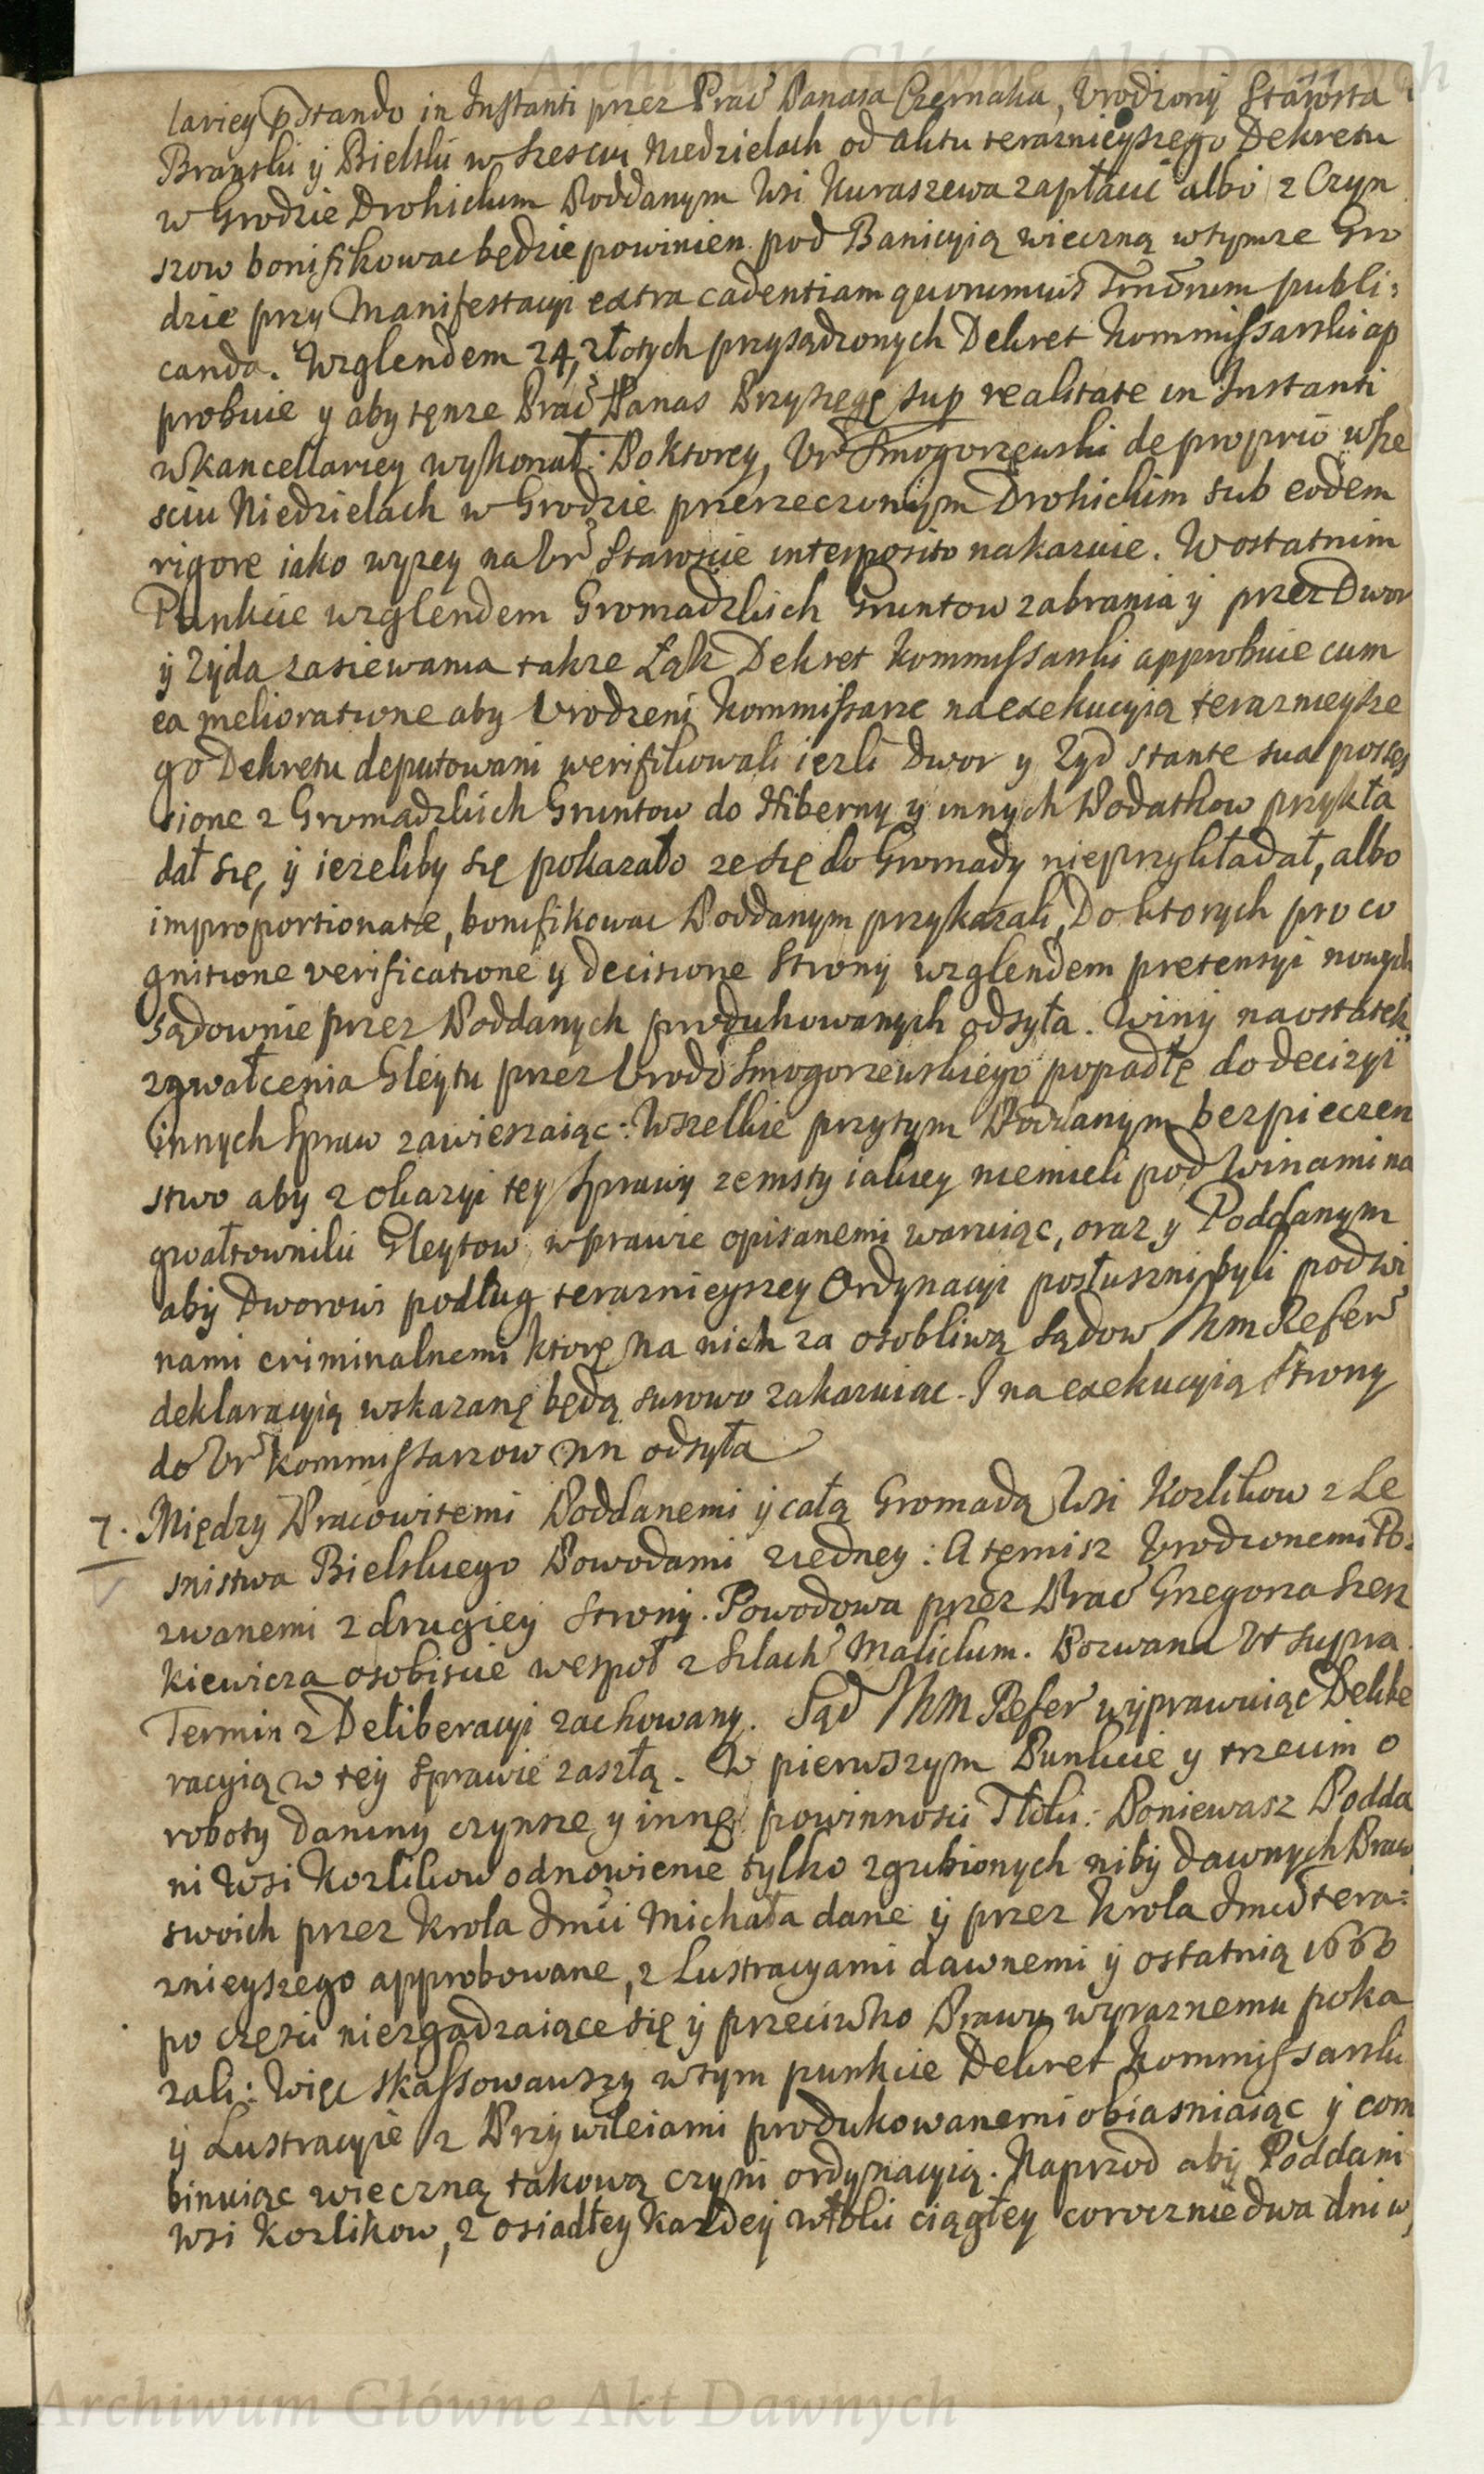 Archiwum Główne Akt Dawnych
lariey pstando in Instanti przez Prac Panasa Czernaka, Urodzony Starosta
Branski ÿ Bielski w szesciu Niedzielach od aktu teraznieyszego Dekretu
w Grodzie Drohickim Poddanym Wsi Kuraszewa zapłacić albo z Czyn
szow bonifikowac będzie powinien pod Banicyią wieczną w tymze Gro
dzie przy Manifestacyi extra cadentiam quorumvis Tmorum publi:
canda. Wzglendem 24, złotych przysądzonych Dekret Kommissarski ap
probuie y aby tęnze Prac Panas Przysięgę sup realitate in Instanti
w kancellariey wykonał. Po ktorey, Ur Smogorzewski de proprio w sze
sciu Niedzielach w Grodzie przerzeczonym Drohickim sub eodem
rigore iako wyzey na Ur Staroscie interposito nakazuie. W ostatnim
Punkcie wzglendem Gromadzkich Gruntow zabrania ÿ przez Dwor
ÿ Zyda zasiewania takze Łąk Dekret Kommissarski approbuie cum
ea melioratione aby Urodzeni Kommissarze na exekucyią teraznieysze
go Dekretu deputowani werifikowali iezli Dwor y Zyd stante sua posses
sione z Gromadzkich Gruntow do Hiberny y innych Podatkow przykła
dał się, ÿ iezeliby się pokazało ze się do Gromady nieprzykładał, albo
improportionate, bonifikowac Poddanym przykazali, Do ktorych pro co
gnitione verificatione y decisione Strony wzglendem pretensyi nowych
sądownie przez Poddanych produkowanych odsyła. Winy na ostatek
zgwałcenia Gleytu przez Urodo Smogorzewskiego popadłe do decizyi
innych spraw zawieszaiąc: Wszelkie przytym Poddanym bezpieczen
stwo aby z okazyi tey sprawy zemsty iakiey niemieli pod winami na
gwałtowniki Gleytow w prawie opisanemi waruiąc, oraz y Poddanym
aby Dworowi podług teraznieyszey Ordynacyi posłuszni byli pod wi
nami criminalnemi ktorę na nich za osobliwą sądow Nm Refer
deklaracyią wskazanę będą surowo zakazuiąc. I na exekucyią Strony
do Ur Kommissarzow nn odsyła
7. Między Pracowitemi Poddanemi ÿ całą Gromadą Wsi Kozlikow z Le
snistwa Bielskiego Powodami z iedney: A tęmisz Urodzonemi Po:
zwanemi z drugiey Strony. Powodowa przez Prac Grzegorza Szesz
kiewicza osobiscie wespoł z szlach Malickim. Pozwana Ut supra.
Termin z Deliberacyi zachowany. Sąd Nm Refer wyprawuiąc Delibe
racyią w tey sprawie zaszłą. W pierwszym Punkcie y trzecim o
roboty daniny czynsze y innę powinnosci Tłoki. Poniewasz Podda
ni Wsi Kozlikow odnowienie tylko zgubionych niby dawnych Praw
swoich przez Krola Jmci Michała dane ÿ przez Krola Jmci tera:
znieyszego approbowane, z Lustracyami dawnemi ÿ ostatnią 1660
po części niezgadzaiące się ÿ przeciwko Prawu wyraznemu poka
zali: Więc skassowawszy w tym punkcie Dekret Kommissarski
ÿ Lustracyie z Przywileiami produkowanemi obiasniaiąc ÿ com
binuiąc wieczną takową czyni ordynacyią. Naprzod aby Poddani
Wsi Kozlikow, z osiadłey kazdey włoki ciągłey corocznie dwa dni w
Archiwum Główne Akt Dawnych